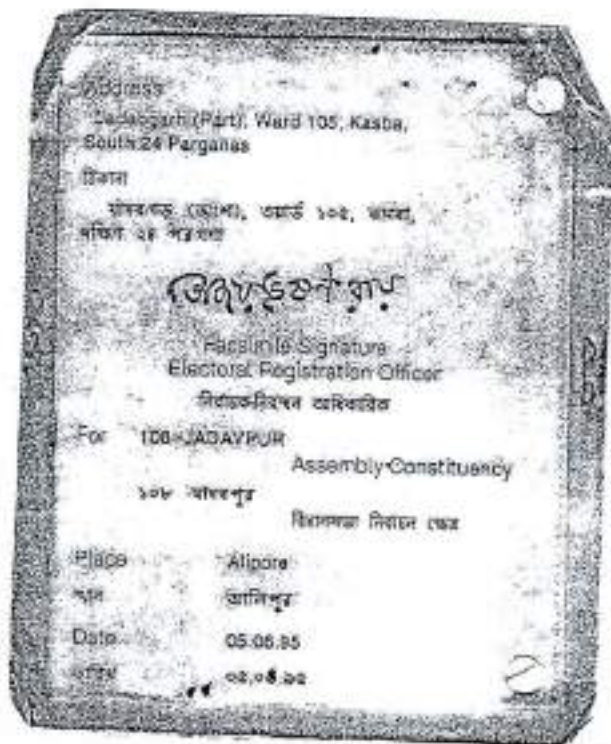 Address
(Part), Ward 105, Kasba,
South 24 Parganas
ঠিকানা
(অংশ), ওয়ার্ড ১০৫,
দক্ষিণ ২৪ পরগনা
Facsimile Signature
Electoral Registration Officer
নির্বাচক-নিবন্ধন আধিকারিক
For 108-JADAVPUR
Assembly Constituency
১০৮ যাদবপুর
বিধানসভা নির্বাচন ক্ষেত্র
Place Alipore
স্থান আলিপুর
Date 05.06.95
তারিখ